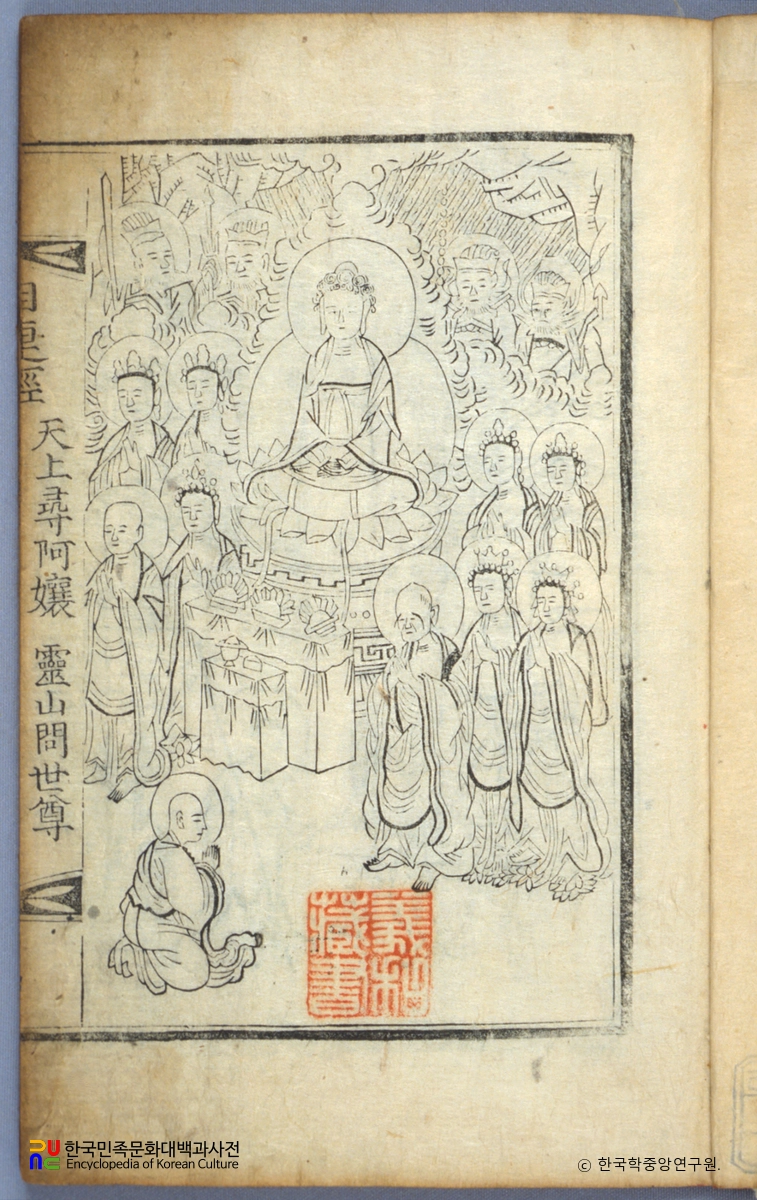 目連經
天上尋阿孃 靈山問世尊
藏書
한국민족문화대백과사전
Encyclopedia of Korean Culture
ⓒ 한국학중앙연구원.